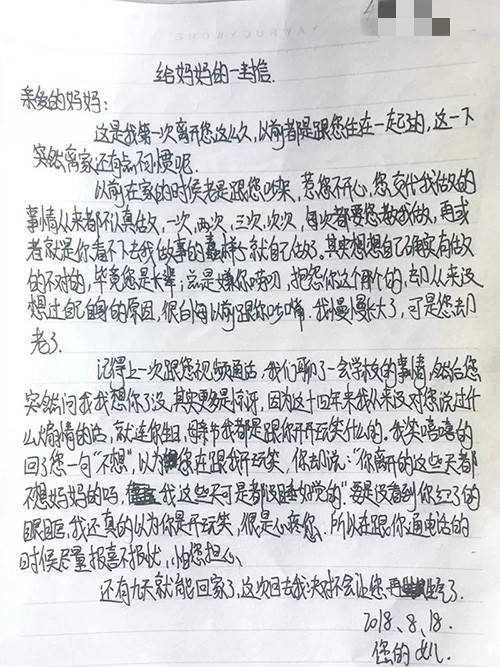 给妈妈的一封信.
亲爱的妈妈:
这是我第一次离开您这么久,以前都是跟您住在一起的,这一下
突然离家还有点不习惯呢.
以前在家的时候老是跟您吵架,惹您不开心,您交代我做的
事情从来都不认真做,一次,两次,三次,次次,每次都要您教我做,再或
者就是你看不下去我做事的蠢样子就自己做了.其实想想自己确实有做
的不对的,毕竟您是长辈;总是嫌你唠叨,抱怨你这个那个的,却从来没
想过自己自身的原因,很后悔以前跟你吵嘴.我慢慢长大了,可是您却
老了.
记得上一次跟您视频通话,我们聊了一会学校的事情,然后您
突然问我我想你了没,其实更多是惊讶,因为这十四年来我从来没对您说过什
么煽情的话,就连你生日,母亲节我都是跟你开开玩笑什么的.我笑嘻嘻的
回了您一句“不想”,以为您在跟我开玩笑,你却说:“你离开的这些天都
不想妈妈的吗,我这些天可是都没睡好觉的”.要是没看到你红了的
眼眶,我还真的以为你是开玩笑,很是心疼你.所以在跟你通电话的
时候尽量报喜不报忧,怕您担心.
还有九天就能回家了,这次回去我决对不会让您再生气了.
2018、8、18.
您的女儿.